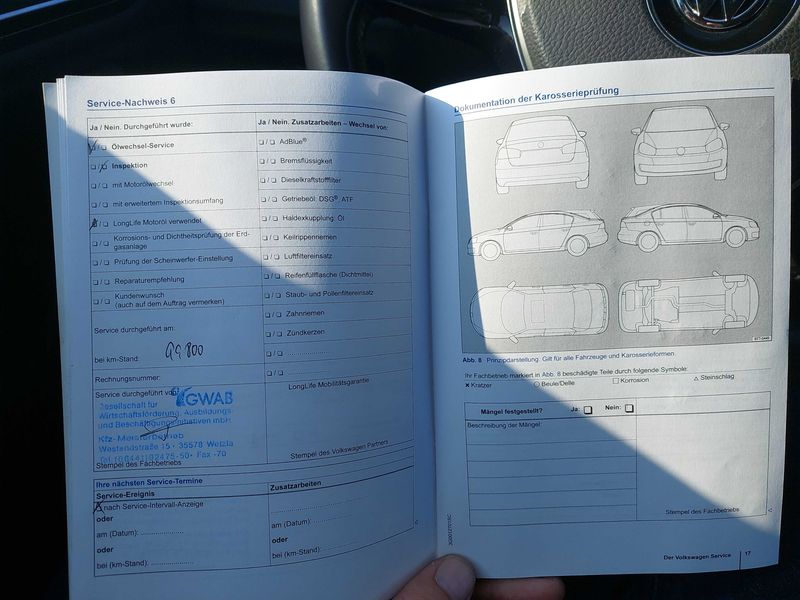 Service-Nachweis 6
Ja / Nein. Durchgeführt wurde:
❑/❑ Ölwechsel-Service
❑/❑ Inspektion
❑/❑ mit Motorölwechsel
❑/❑ mit erweitertem Inspektionsumfang
❑/❑ LongLife Motoröl verwendet
❑/❑ Korrosions- und Dichtheitsprüfung der Erd-
gasanlage
❑/❑ Prüfung der Scheinwerfer-Einstellung
❑/❑ Reparaturempfehlung
❑/❑ Kundenwunsch
(auch auf dem Auftrag vermerken)
Service durchgeführt am:
bei km-Stand: 99 800
Rechnungsnummer:
Service durchgeführt von:
GWAB
Gesellschaft für
Wirtschaftsförderung, Ausbildungs-
und Beschäftigungsinitiativen mbH
Kfz-Meisterbetrieb
Westendstraße 15 • 35578 Wetzlar
Fax -70
Stempel des Fachbetriebs
Ja / Nein. Zusatzarbeiten – Wechsel von:
❑/❑ AdBlue®
❑/❑ Bremsflüssigkeit
❑/❑ Dieselkraftstofffilter
❑/❑ Getriebeöl: DSG®, ATF
❑/❑ Haldexkupplung: Öl
❑/❑ Keilrippenriemen
❑/❑ Luftfiltereinsatz
❑/❑ Reifenfüllflasche (Dichtmittel)
❑/❑ Staub- und Pollenfiltereinsatz
❑/❑ Zahnriemen
❑/❑ Zündkerzen
❑/❑
❑/❑
LongLife Mobilitätsgarantie
Stempel des Volkswagen Partners
Ihre nächsten Service-Termine
Service-Ereignis
nach Service-Intervall-Anzeige
oder
am (Datum):
oder
bei (km-Stand):
Zusatzarbeiten
am (Datum):
oder
bei (km-Stand):
Dokumentation der Karosserieprüfung
Abb. 8 Prinzipdarstellung. Gilt für alle Fahrzeuge und Karosserieformen.
Ihr Fachbetrieb markiert in Abb. 8 beschädigte Teile durch folgende Symbole:
× Kratzer ○ Beule/Delle ☐ Korrosion △ Steinschlag
Mängel festgestellt? Ja: ❑ Nein: ❑
Beschreibung der Mängel:
Stempel des Fachbetriebs
Der Volkswagen Service 17